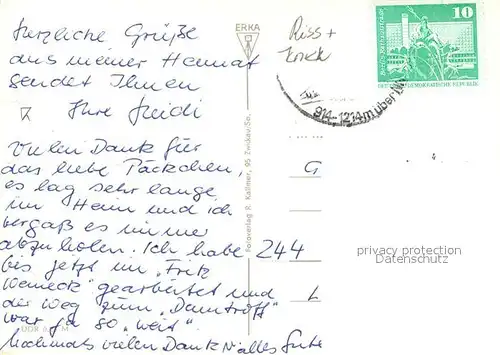 Herzliche Grüße
aus meiner Heimat
sendet Ihnen
Ihre Heidi
Vielen Dank für
das liebe Päckchen,
es lag sehr lange
im Heim und ich
vergaß es immer
abzuholen. Ich habe
bis jetzt im "Fritz
Weineck" gearbeitet und
der Weg zum "Damtroff"
war ja so "weit".
Nochmals vielen Dank alles Gute
ERKA
Fotoverlag R. Kallmer, 95 Zwickau/Sa.
Riss +
Knick
10
DEUTSCHE DEMOKRATISCHE REPUBLIK
914-1214m über
G
244
L
privacy protection
Datenschutz